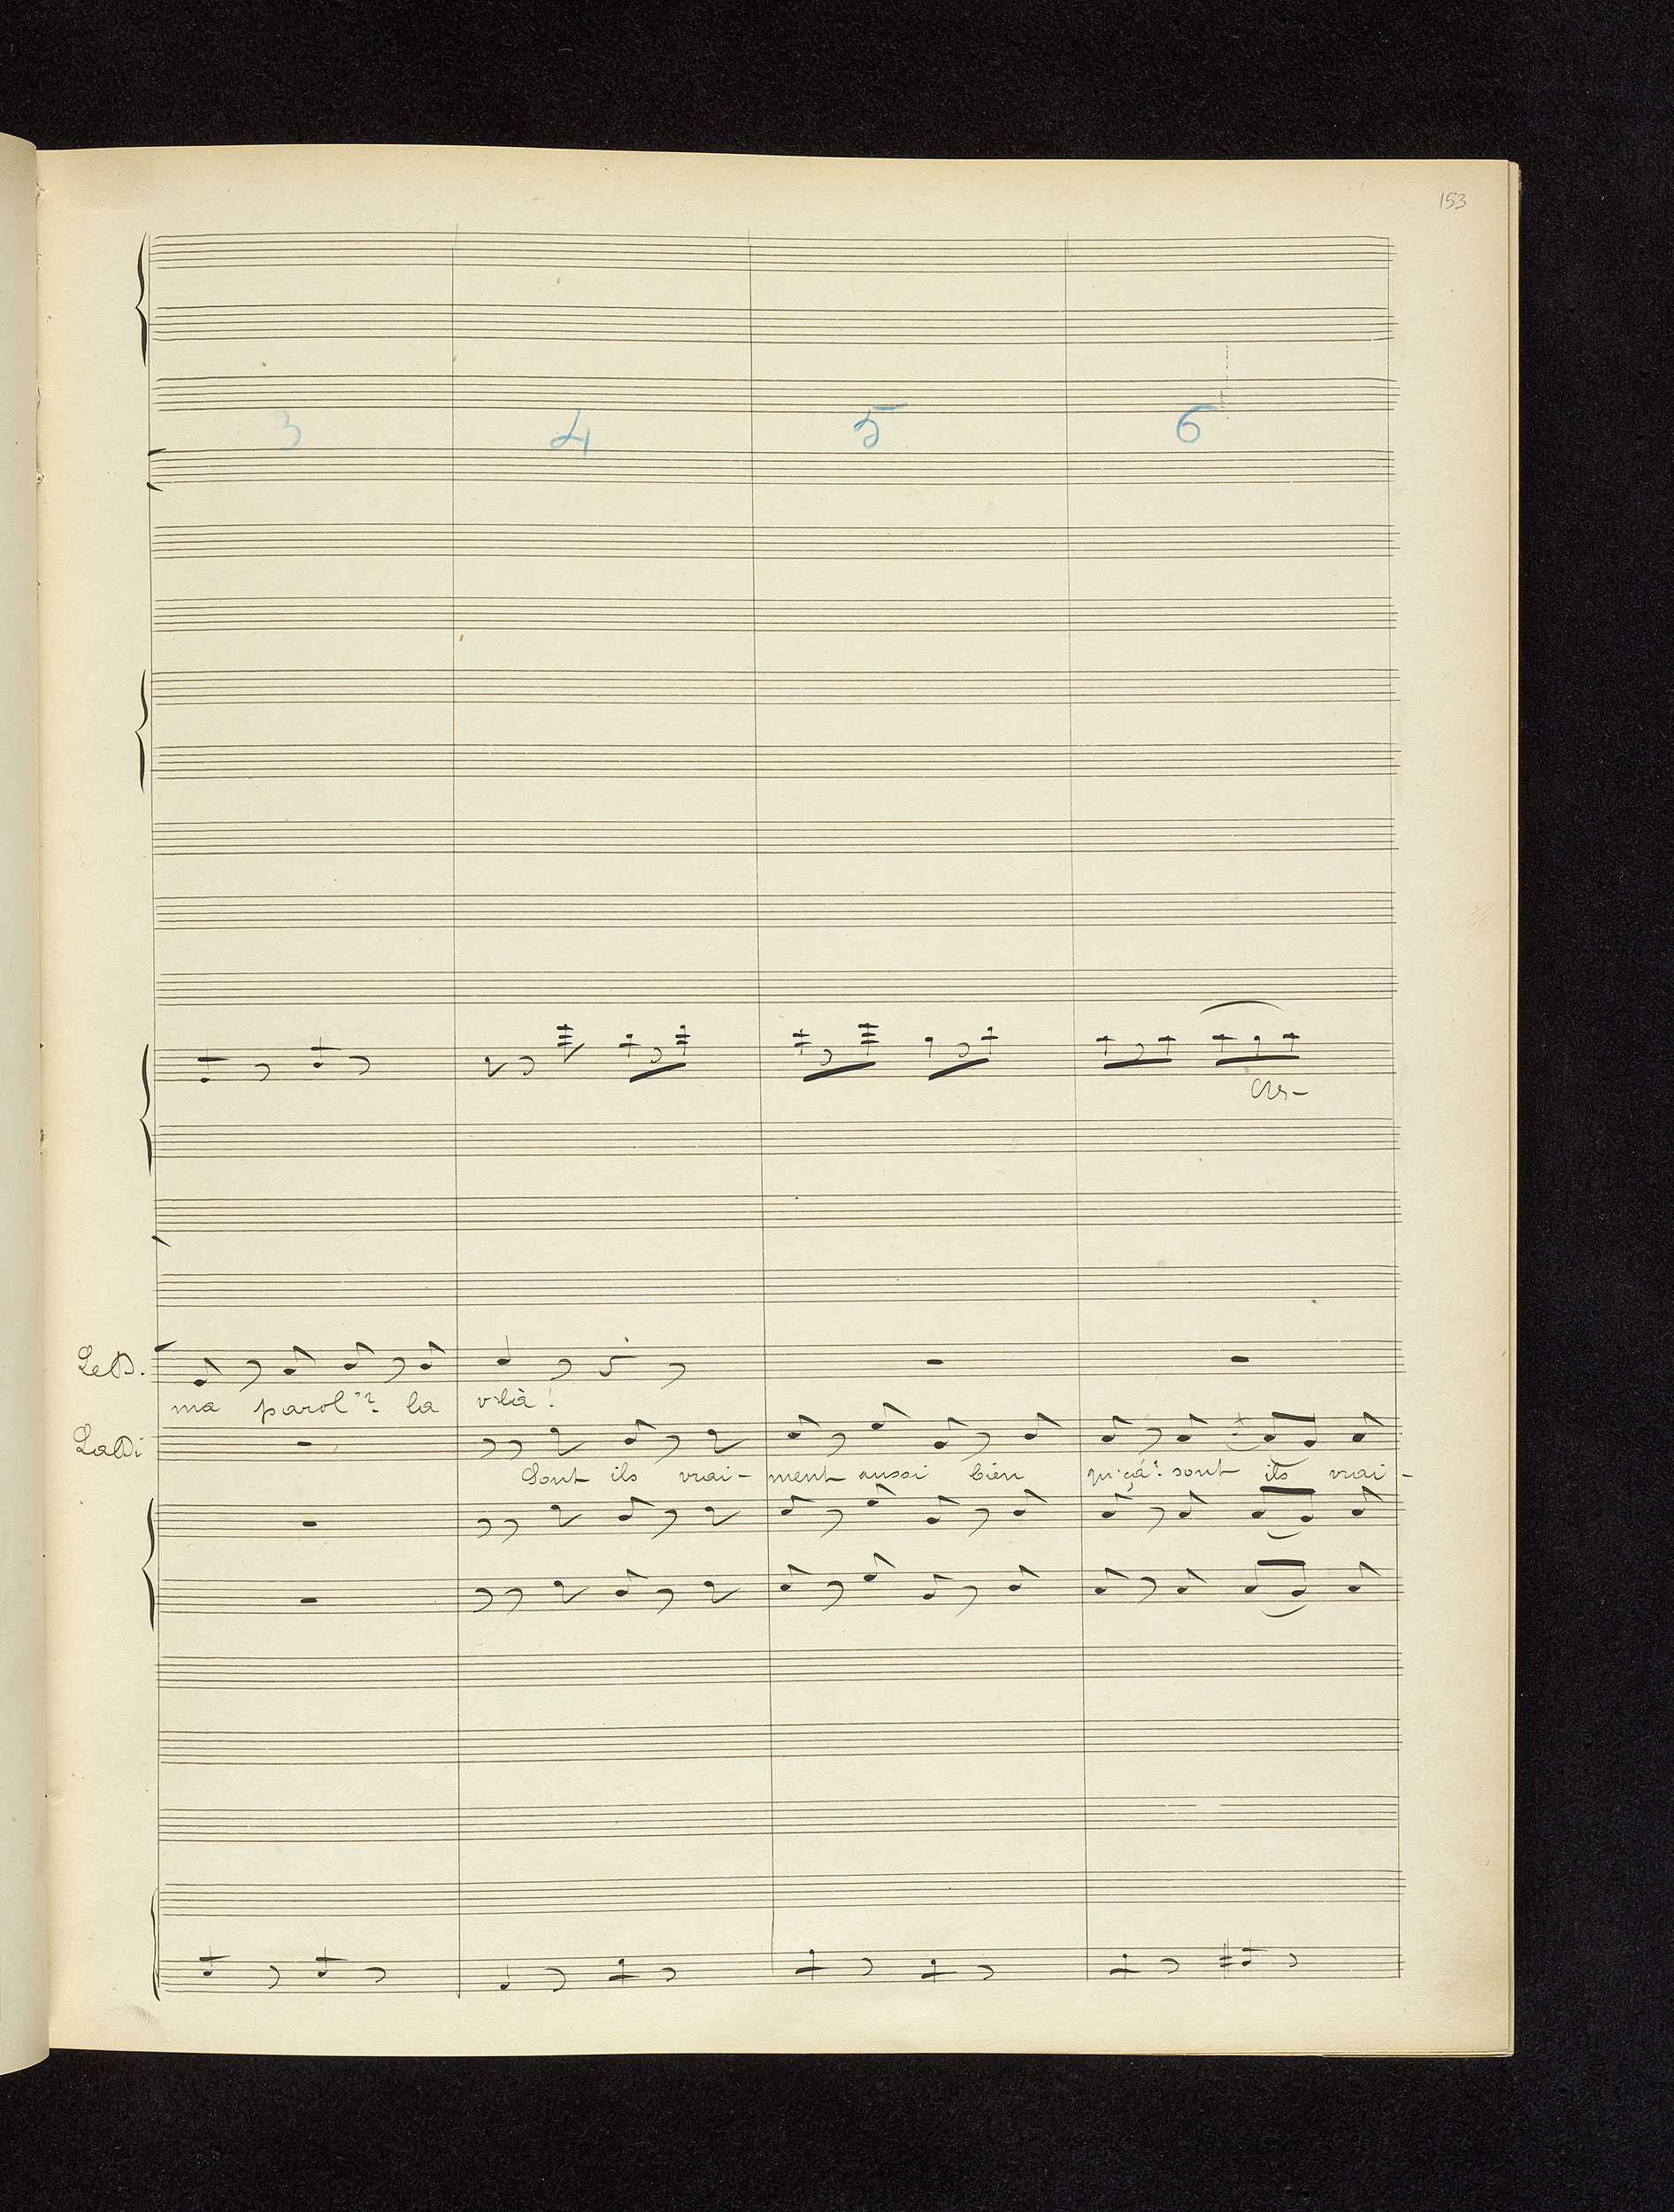 153
3 4 5 6
Cres-
Le D.
ma parol'? la v'là!
La Di
Sont ils vrai- ment aussi bien qu'çà? sont ils vrai-